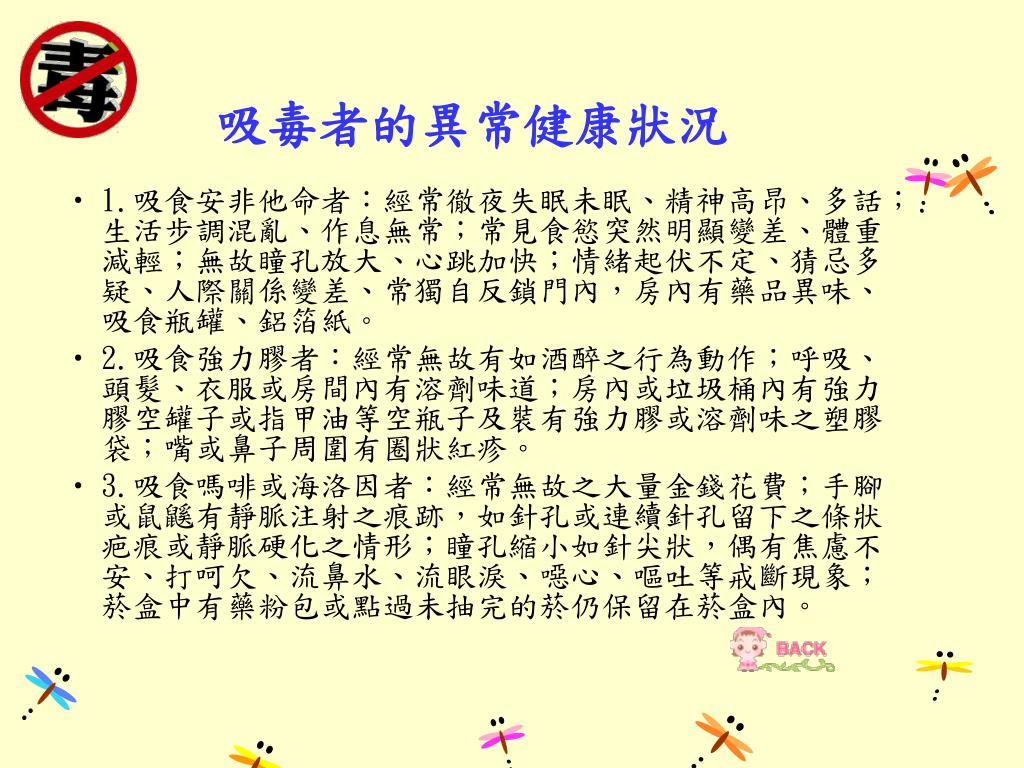 毒
吸毒者的異常健康狀況
• 1.吸食安非他命者：經常徹夜失眠未眠、精神高昂、多話；
生活步調混亂、作息無常；常見食慾突然明顯變差、體重
減輕；無故瞳孔放大、心跳加快；情緒起伏不定、猜忌多
疑、人際關係變差、常獨自反鎖門內，房內有藥品異味、
吸食瓶罐、鋁箔紙。
• 2.吸食強力膠者：經常無故有如酒醉之行為動作；呼吸、
頭髮、衣服或房間內有溶劑味道；房內或垃圾桶內有強力
膠空罐子或指甲油等空瓶子及裝有強力膠或溶劑味之塑膠
袋；嘴或鼻子周圍有圈狀紅疹。
• 3.吸食嗎啡或海洛因者：經常無故之大量金錢花費；手腳
或鼠鼷有靜脈注射之痕跡，如針孔或連續針孔留下之條狀
疤痕或靜脈硬化之情形；瞳孔縮小如針尖狀，偶有焦慮不
安、打呵欠、流鼻水、流眼淚、噁心、嘔吐等戒斷現象；
菸盒中有藥粉包或點過未抽完的菸仍保留在菸盒內。
BACK